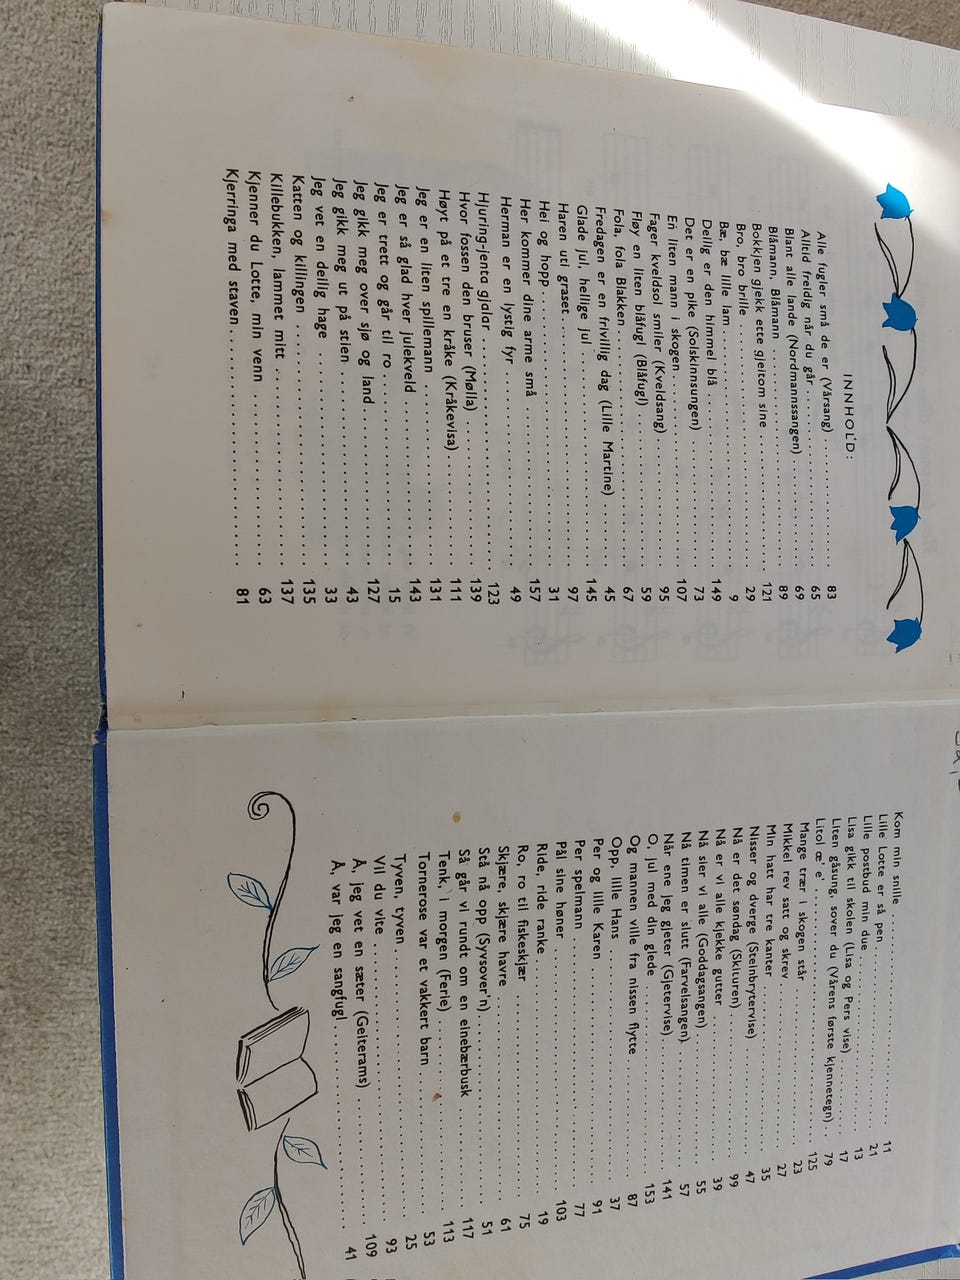 INNHOLD:
Alle fugler små de er (Vårsang) . . . . . . . . . 83
Alltid freidig når du går . . . . . . . . . 65
Blant alle lande (Nordmannssangen) . . . . . . . . . 69
Blåmann, Blåmann . . . . . . . . . 89
Bokkjen gjekk ette gjeitom sine . . . . . . . . . 121
Bro, bro brille . . . . . . . . . 29
Bæ, bæ lille lam . . . . . . . . . 9
Deilig er den himmel blå . . . . . . . . . 149
Det er en pike (Solskinnsungen) . . . . . . . . . 73
En liten mann i skogen . . . . . . . . . 107
Fager kveldsol smiler (Kveldsang) . . . . . . . . . 95
Fløy en liten blåfugl (Blåfugl) . . . . . . . . . 59
Fola, fola Blakken . . . . . . . . . 67
Fredagen er en frivillig dag (Lille Martine) . . . . . . . . . 45
Glade jul, hellige jul . . . . . . . . . 145
Haren uti graset . . . . . . . . . 97
Hei og hopp . . . . . . . . . 31
Her kommer dine arme små . . . . . . . . . 157
Herman er en lystig fyr . . . . . . . . . 49
Hjuring-jenta gjalar . . . . . . . . . 123
Hvor fossen den bruser (Mølla) . . . . . . . . . 139
Høyt på et tre en kråke (Kråkevisa) . . . . . . . . . 111
Jeg er en liten spillemann . . . . . . . . . 131
Jeg er så glad hver julekveld . . . . . . . . . 143
Jeg er trett og går til ro . . . . . . . . . 15
Jeg gikk meg over sjø og land . . . . . . . . . 127
Jeg gikk meg ut på stien . . . . . . . . . 43
Jeg vet en deilig hage . . . . . . . . . 33
Katten og killingen . . . . . . . . . 135
Killebukken, lammet mitt . . . . . . . . . 137
Kjenner du Lotte, min venn . . . . . . . . . 63
Kjerringa med staven . . . . . . . . . 81
Kom min snille . . . . . . . . . 11
Lille Lotte er så pen . . . . . . . . . 21
Lille postbud min due . . . . . . . . . 13
Lisa gikk til skolen (Lisa og Pers vise) . . . . . . . . . 17
Liten gåsung, sover du (Vårens første kjennetegn) . . 79
Litol æ' e' . . . . . . . . . 125
Mange trær i skogen står . . . . . . . . . 23
Mikkel rev satt og skrev . . . . . . . . . 27
Min hatt har tre kanter . . . . . . . . . 35
Nisser og dverge (Steinbrytervise) . . . . . . . . . 47
Nå er det søndag (Skituren) . . . . . . . . . 99
Nå er vi alle kjekke gutter . . . . . . . . . 39
Nå sier vi alle (Goddagsangen) . . . . . . . . . 55
Nå timen er slutt (Farvelsangen) . . . . . . . . . 57
Når ene jeg gjeter (Gjetervise) . . . . . . . . . 141
O, jul med din glede . . . . . . . . . 153
Og mannen ville fra nissen flytte . . . . . . . . . 87
Opp, lille Hans . . . . . . . . . 37
Per og lille Karen . . . . . . . . . 91
Per spelmann . . . . . . . . . 77
Pål sine høner . . . . . . . . . 103
Ride, ride ranke . . . . . . . . . 19
Ro, ro til fiskeskjær . . . . . . . . . 75
Skjære, skjære havre . . . . . . . . . 61
Stå nå opp (Syvsover'n) . . . . . . . . . 51
Så går vi rundt om en einebærbusk . . . . . . . . . 117
Tenk, i morgen (Ferie) . . . . . . . . . 113
Tornerose var et vakkert barn . . . . . . . . . 53
Tyven, tyven . . . . . . . . . 25
Vil du vite . . . . . . . . . 93
Å, jeg vet en sæter (Geiterams) . . . . . . . . . 109
Å, var jeg en sangfugl . . . . . . . . . 41